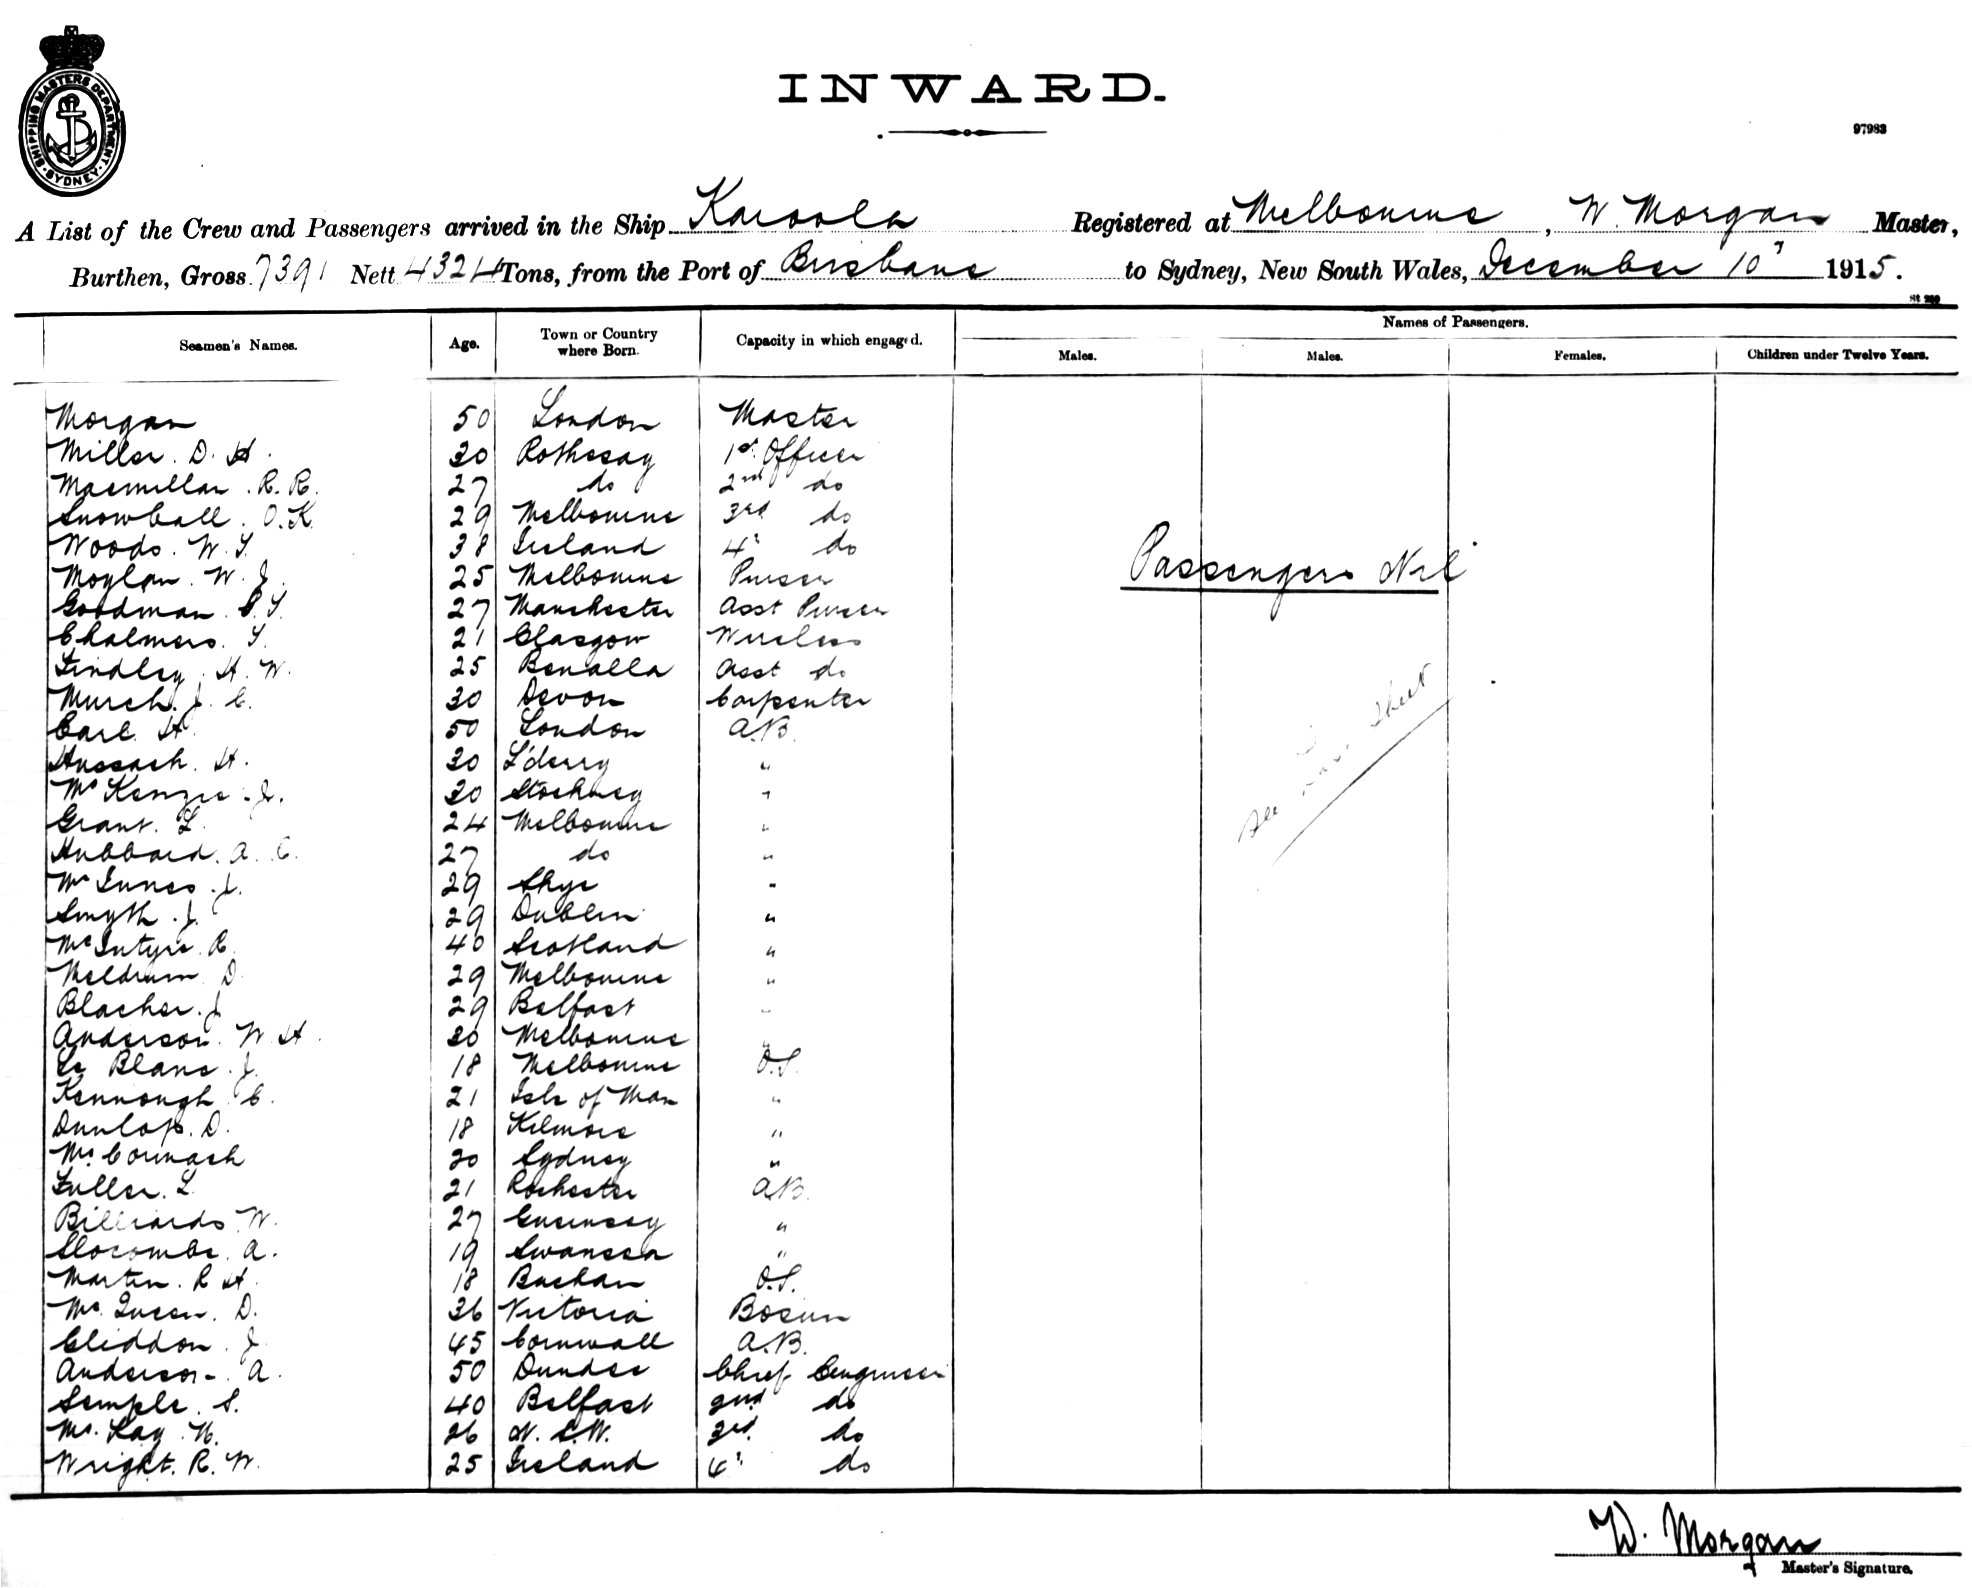 SHIPPING MASTERS DEPARTMENT. SYDNEY.
INWARD.
97983
A List of the Crew and Passengers arrived in the Ship Karoola Registered at Melbourne, W. Morgan Master,
Burthen, Gross 7391 Nett 4324 Tons, from the Port of Brisbane to Sydney, New South Wales, December 10" 1915.
Seamen's Names. Age. Town or Country where Born. Capacity in which engaged. Names of Passengers.
Males. Males. Females. Children under Twelve Years.
Morgan 50 London Master
Miller. D. H. 30 Rothesay 1st Officer
Macmillan. R. R. 27 do 2nd do
Snowball. O. K. 29 Melbourne 3rd do
Woods. W. S. 38 Ireland 4" do
Moylan. W. J. 25 Melbourne Purser
Goodman. S. 27 Manchester Asst Purser
Chalmers. S. 21 Glasgow Wireless
Findley. H. W. 25 Benalla Asst do
Murch. J. C. 30 Devon Carpenter
Carl. H. 50 London A.B.
Hussack. H. 30 L'derry "
McKenzie. J. 30 "
Grant. L. 24 Melbourne "
Hubbard. A. C. 27 do "
McInnes. J. 29 Skye "
Smyth. J. 29 Dublin "
McIntyre. R. 40 Scotland "
Meldrum D. 29 Melbourne "
Blacker. J. 29 Belfast "
Anderson. W. H. 30 Melbourne "
Le Blanc. J. 18 Melbourne O.S.
Kennough. C. 21 Isle of Man "
Dunlop. D. 18 Kilmore "
McCormack 20 Sydney "
Fuller. L. 21 Rochester A.B.
Billiards W. 27 Guernsey "
Slocombe. A. 19 Swansea "
Martin. R. H. 18 Buchan O.S.
McQueen. D. 36 Victoria Bosun
Gliddon. J. 45 Cornwall A.B.
Anderson. A. 50 Dundee Chief Engineer
Semple. S. 40 Belfast 2nd do
McKay. N. 26 N.S.W. 3rd do
Wright. R. W. 25 Ireland 4" do
Passengers Nil
See Sheet
W. Morgan
Master's Signature.